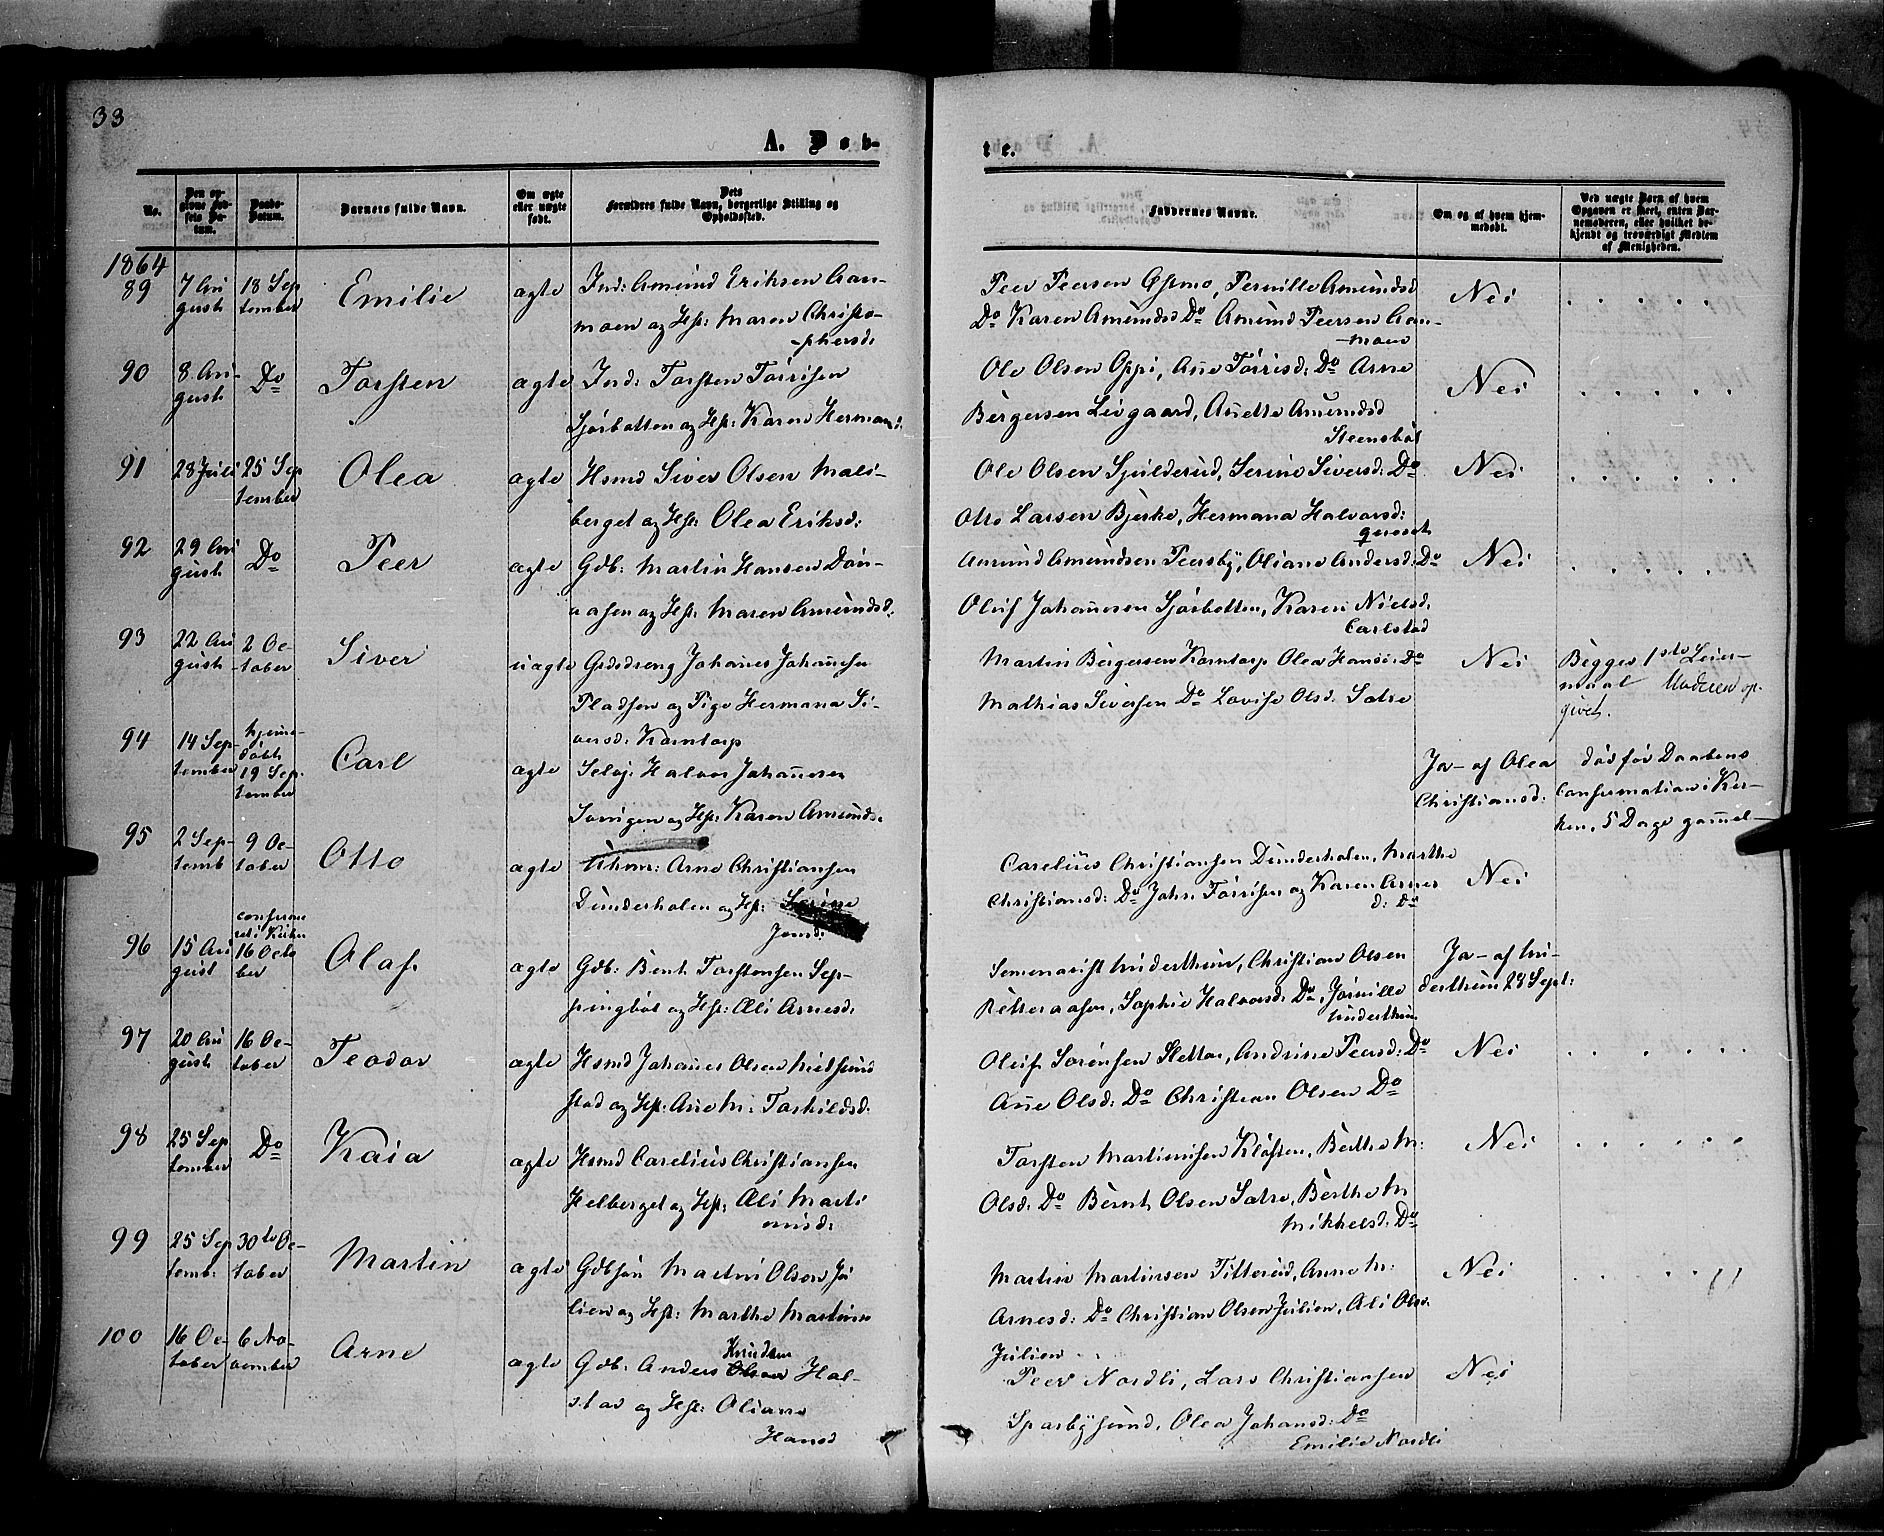 33
A. Døb-
te.
No.
Den opgivne Fødsels Datum.
Daabs-Datum.
Barnets fulde Navn.
Om ægte eller uægte født.
Dets Forældres fulde Navn, borgerlige Stilling og Opholdssted.
Faddernes Navne.
Om og af hvem hjemmedøbt.
Ved uægte Barn af hvem Opgaven er skeet, enten Barnemoderen, eller hvilket bekjendt og troværdigt Medlem af Menigheden.
1864
89 7 August 18 September Emilie ægte Ind: Amund Eriksen Aan-
moen og Hst: Maren Christo-
-phersd:
Peer Peersen Østmo, Pernille Amundsd
Do Karen Amundsd Do Amund Peersen Aan-
-moen
Nei
90 8 August Do Torsten ægte Ind: Torsten Torrisen
Sjørbotten og Hst: Karen Hermansd:
Ole Olsen Oppi, Ane Torrisd: Do Arne
Bergersen Livgaard, Anette Amundsd
Steensbøl
Nei
91 28 Juli 25 September Olea ægte Hsmd Siver Olsen Mali-
berget og Hst: Olea Eriksd:
Ole Olsen Sjulderud, Serine Siversd: Do
Otto Larsen Bjerke, Hermana Halvorsd:
Nei
92 29 August Do Peer ægte Gdb: Martin Hansen Døn-
aasen og Hst: Maren Amundsd:
Amund Amundsen Peersby, Oliane Andersd: Do
Oluf Johannesen Sjørbotten, Karen Nielsd.
Carlstad
Nei
93 22 August 2 October Siver uægte Grdsdreng Johanes Johannesen
Pladsen og Pige Hermana Si-
versd: Korntorp
Martin Bergersen Korntorp Olea Hansd: Do
Mathias Siversen Do Lovise Olsd: Satre
Nei
Begges 1ste Leier-
maal Moderen op-
givet.
94 14 September hjemme-
døbt
19 Sep-
tember
Carl ægte Selvj: Halvor Johannesen
Svingen og Hst: Karen Amunds.
Ja - af Olea
Christiansd:
død før Daabens
Confirmation i Kir-
ken, 5 Dage gammel-
95 2 Septemb 9 October Otto ægte Arne Christiansen
Dunderholen og Hst: Serine
Jonsd:
Carelius Christiansen Dunderholen, Marthe
Christiansd: Do John Torrisen og Karen Arnes
d: Do
Nei
96 15 August confirme-
ret i Kirken
16 October
Olaf ægte Gdb: Bernt Torstensen Sep-
pingbøl og Hst: Æli Arnesd:
Semenarist Underthun, Christian Olsen
Sophie Halvorsd: Do, Jørnille
Underthun
Ja - af Un-
derthun 28 Sept:
97 20 August 16 October Teodor ægte Hsmd Johannes Olsen Midtsund
stad og Hst: Ane M: Torkildsd:
Oluf Sørensen Sletten, Andrine Peersd: Do
Ane Olsd: Do Christian Olsen Do
Nei
98 25 September Do Kaia ægte Hsmd Carelius Christiansen
Helberget og Hst: Æli Marti
nusd:
Torsten Martinusen Kløften, Berthe M:
Olsd: Do Bernt Olsen Satre, Berthe M
Mikkelsd: Do
Nei
99 25 Septemb: 30te October Martin ægte Gdbsøn Martin Olsen Ju
lien og Hst: Marthe Martinsd
Martin Martinsen Titterud, Anne M:
Arnesd: Do Christian Olsen Julien, Ali Olsd.
Julien
Nei
100 16 October 6 November Arne ægte Gdb: Anders Olsen Knudsen Hal-
stad og Hst: Oliane
Hansd
Peer Nordli, Lars Christiansen
Sparbysund, Olea Johansd: Do
Emilie Nordli
Nei